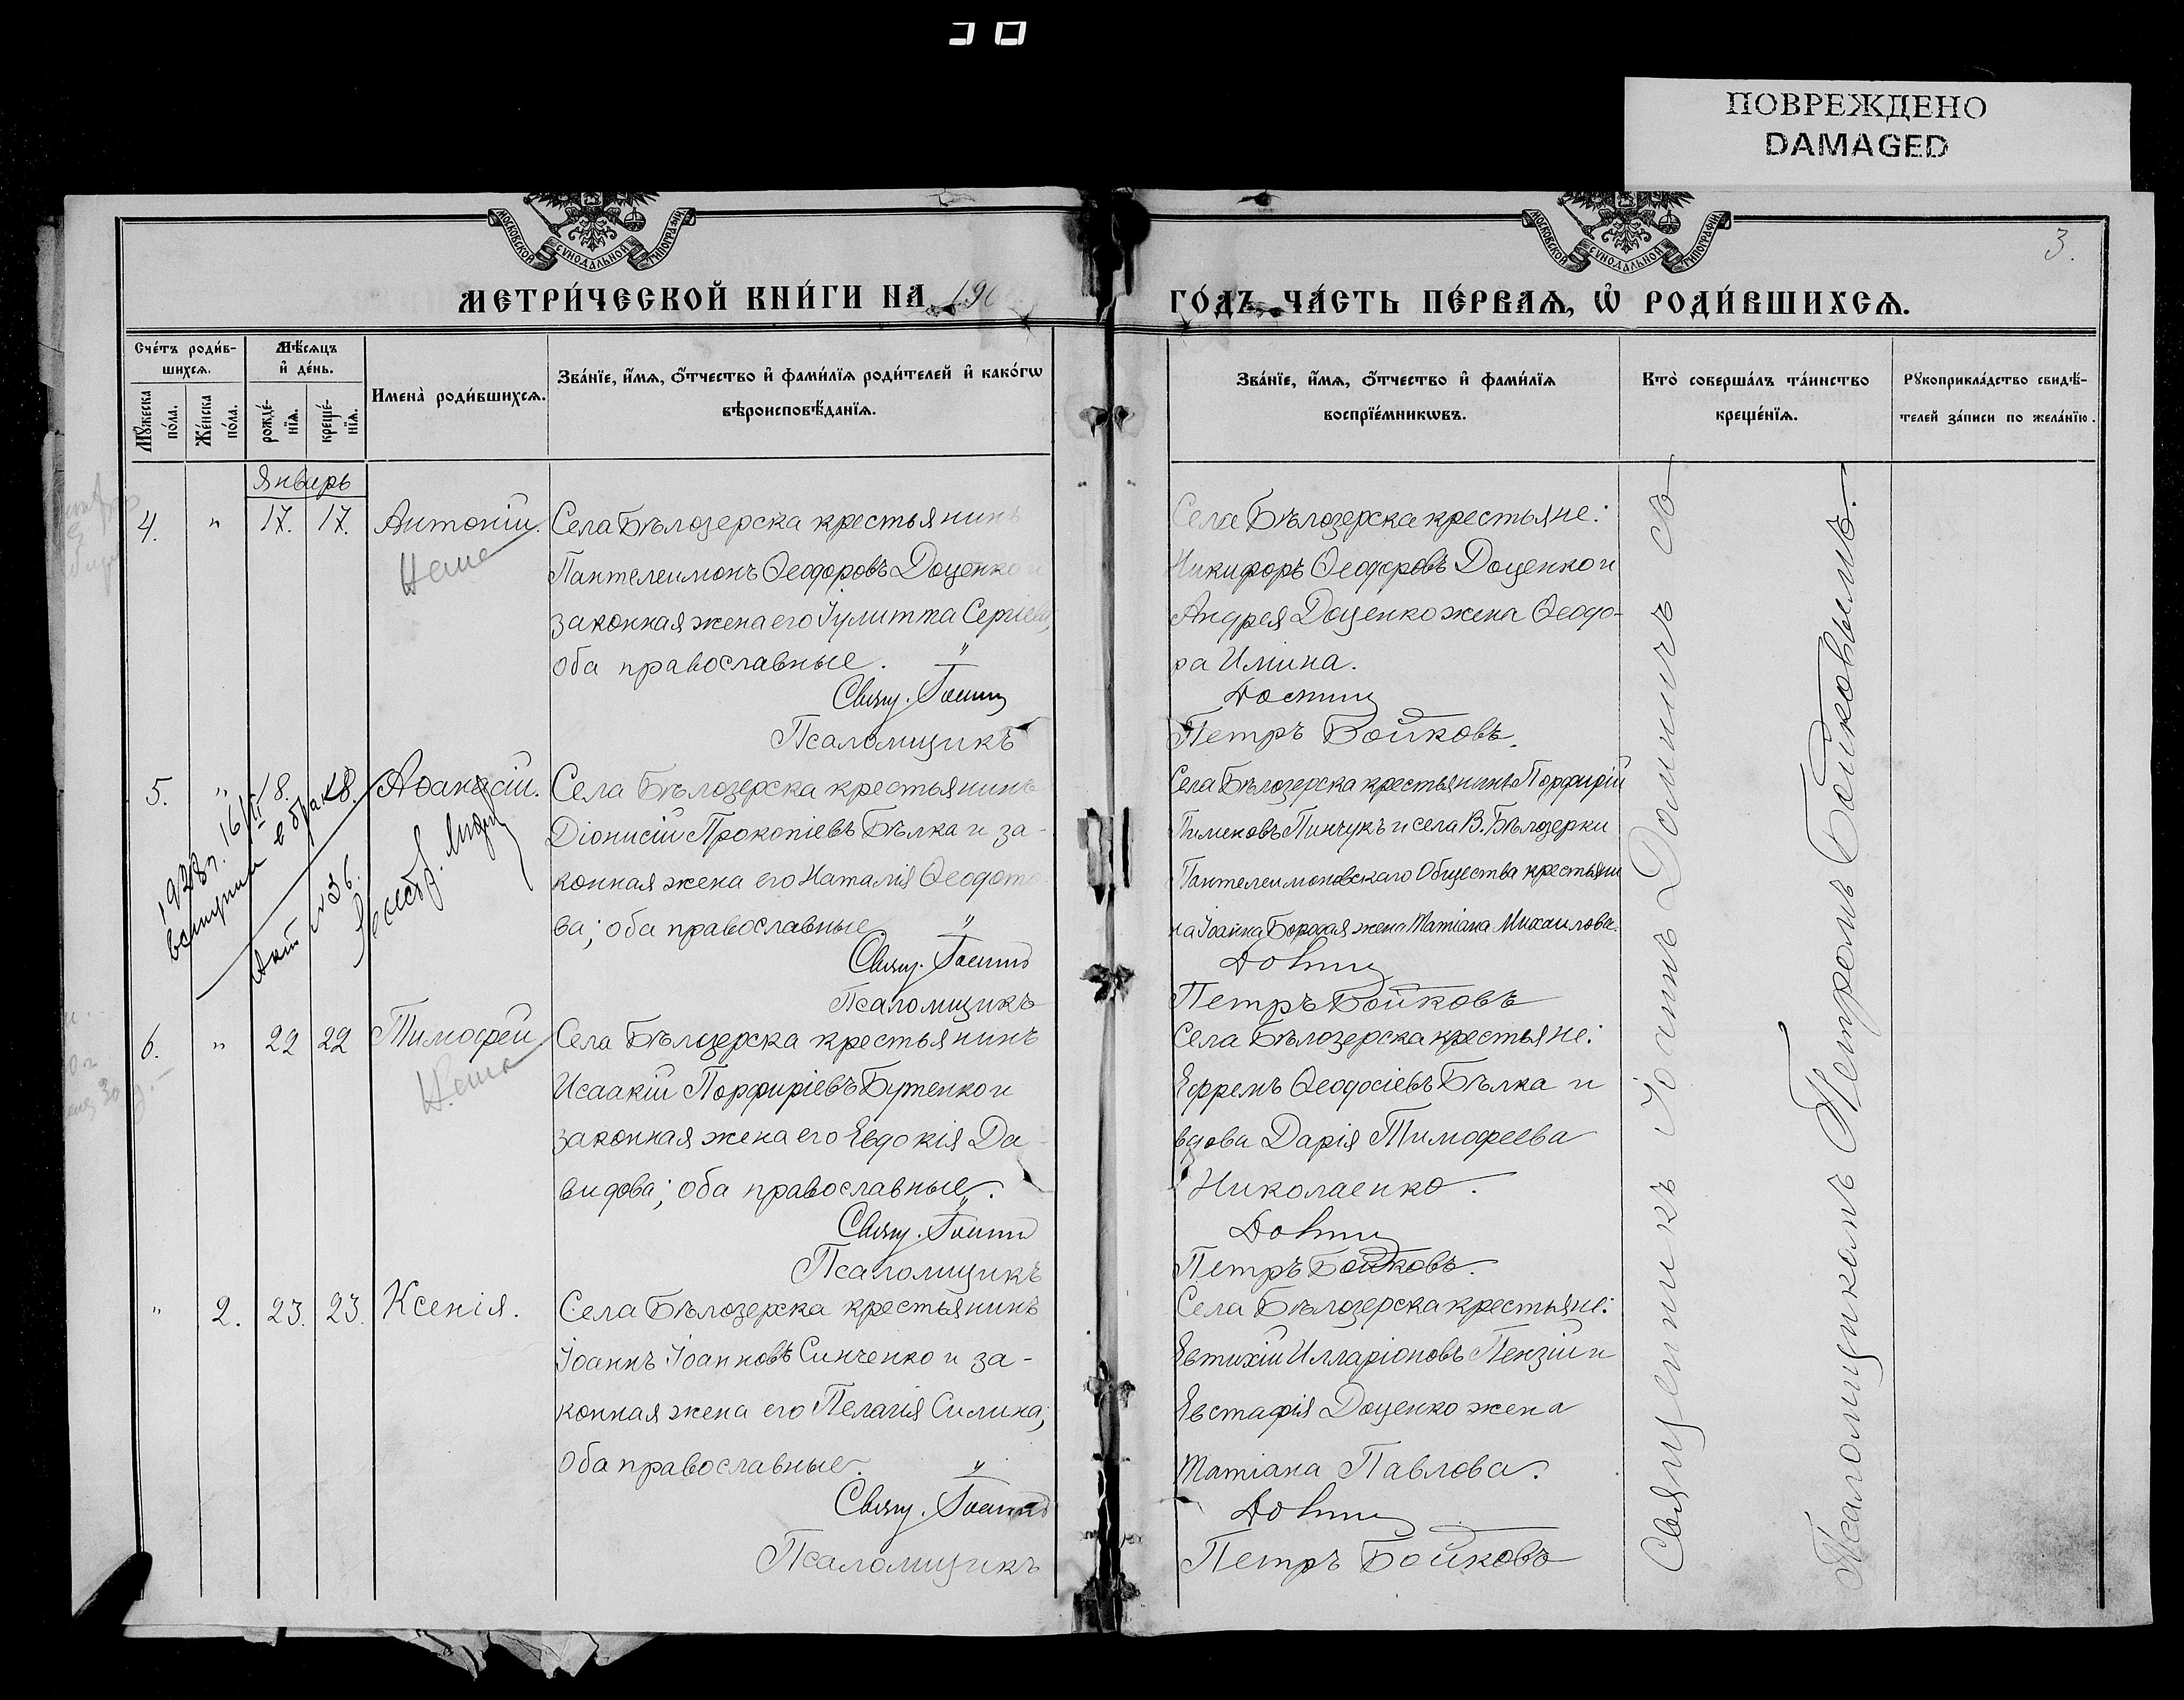 ПОВРЕЖДЕНО
DAMAGED
МОСКОВСКОЙ СУНОДАЛЬНОЙ ТИПОГРАФІИ
МОСКОВСКОЙ СУНОДАЛЬНОЙ ТИПОГРАФІИ
3.
МЕТРИ́ЧЕСКОЙ КНИ́ГИ НА 190
ГО́ДЪ, ЧА́СТЬ ПЕ́РВАѦ, Ѡ҆ РОДИ́ВШИХСѦ.
Сче́тъ роди́в-
шихсѧ.
Мꙋ́жеска по́ла.
Же́нска по́ла.
Мѣ́сѧцъ
и҆ де́нь.
рожде́-нїѧ.
креще́-нїѧ.
Имена̀ роди́вшихсѧ.
Зва́нїе, и҆́мѧ, ѻ҆́тчество и҆ фами́лїѧ роди́телей и҆ како́гѡ
вѣроисповѣ́данїѧ.
Зва́нїе, и҆́мѧ, ѻ҆́тчество и҆ фами́лїѧ
воспрїе́мникѡвъ.
Кто̀ соверша́лъ та́инство
креще́нїѧ.
Рꙋкоприкла́дство свидѣ́-
телей за́писи по жела́нїю.
Январь
4. " 17. 17. Антоній.
Села Бѣлозерска крестьянинъ
Пантелеимонъ Ѳеодоровъ Доценко и
законная жена его Іулитта Сергіева,
оба православные. "
Свящ. Іоаннъ
Псаломщикъ
Села Бѣлозерска крестьяне:
Никифоръ Ѳеодоровъ Доценко и
Андрея Доценко жена Ѳеодо-
ра Имина.
Петръ Бойковъ.
5. " 18. 18. Аѳанасій.
1928 г. 16/II
вступил в брак
Акт №36.
Села Бѣлозерска крестьянинъ
Діонисій Прокопіевъ Бѣлка и за-
конная жена его Наталія Ѳеодото-
ва; оба православные "
Свящ. Іоаннъ
Псаломщикъ
Села Бѣлозерска крестьянинъ Порфирій
Пименовъ Пинчукъ и села В. Бѣлозерки
Пантелеимоновскаго Общества крестьяни
на Іоанна жена Матіана Михаилова.
Петръ Бойковъ
6. " 22 22 Тимофей
Села Бѣлозерска крестьянинъ
Исаакій Порфиріевъ Бутенко и
законная жена его Евдокія Да-
видова; оба православные. "
Свящ. Іоаннъ
Псаломщикъ
Села Бѣлозерска крестьяне:
Ефремъ Ѳеодосіевъ Бѣлка и
вдова Дарія Тимофеева
Николаенко.
Петръ Бойковъ.
" 2. 23. 23. Ксенія.
Села Бѣлозерска крестьянинъ
Іоаннъ Іоанновъ Синченко и за-
конная жена его Пелагія Силина;
оба православные. "
Свящ. Іоаннъ
Псаломщикъ
Села Бѣлозерска крестьяне:
Евтихій Илларіоновъ Пензій и
Евстафія Доценко жена
Матіана Павлова.
Петръ Бойковъ
Священникъ Іоаннъ съ
Псаломщикомъ Петромъ Бойковымъ.